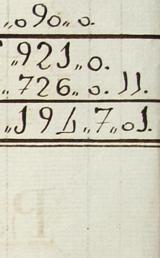 „090„ 0.
„921„ 0.
„726„ 0. 11.
„194„7„01.